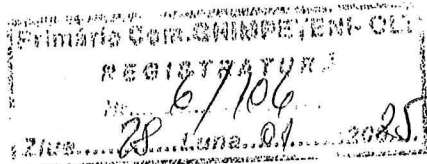 Primăria Com. GHIMPEȚENI-OLT
REGISTRATURĂ
Nr. 6/106
Ziua 28 Luna 01 2025